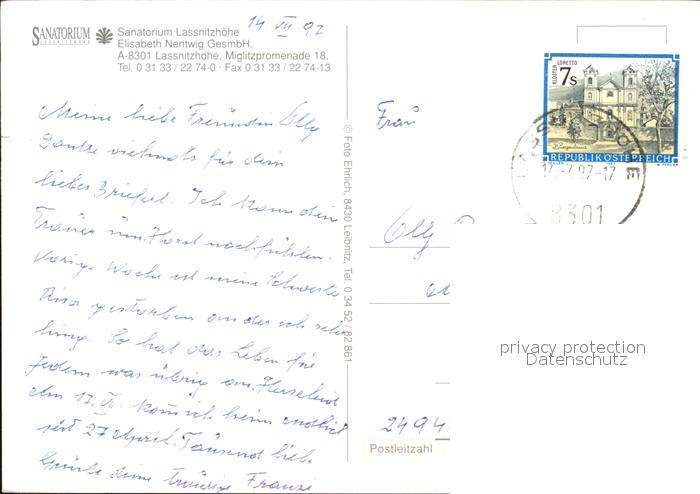 14 VII 97
SANATORIUM
LASSNITZHÖHE
Sanatorium Lassnitzhöhe
Elisabeth Nentwig GesmbH.
A-8301 Lassnitzhöhe, Miglitzpromenade 18,
Tel. 0 31 33 / 22 74-0 · Fax 0 31 33 / 22 74-13
Meine liebe Freundin Olly
Danke vielmals für dein
liebes Brieferl. Ich kann dein
Trauer um Horst nachfühlen.
Vorige Woche ist meine Schwester
Risa gestorben an der ich sehr
hing. So hat das Leben für
Jedem was übrig an Herzeleid
Am 17. VII. kom ich heim endlich
seit 27 April. Tausend liebe
Grüße deine traurige Franzi
© Foto Ehrich, 8430 Leibnitz, Tel. 0 34 52 / 82 861
Frau
Olly
2494
Postleitzahl
KLOSTER LORETTO
7s
REPUBLIK ÖSTERREICH
8301
privacy protection
Datenschutz